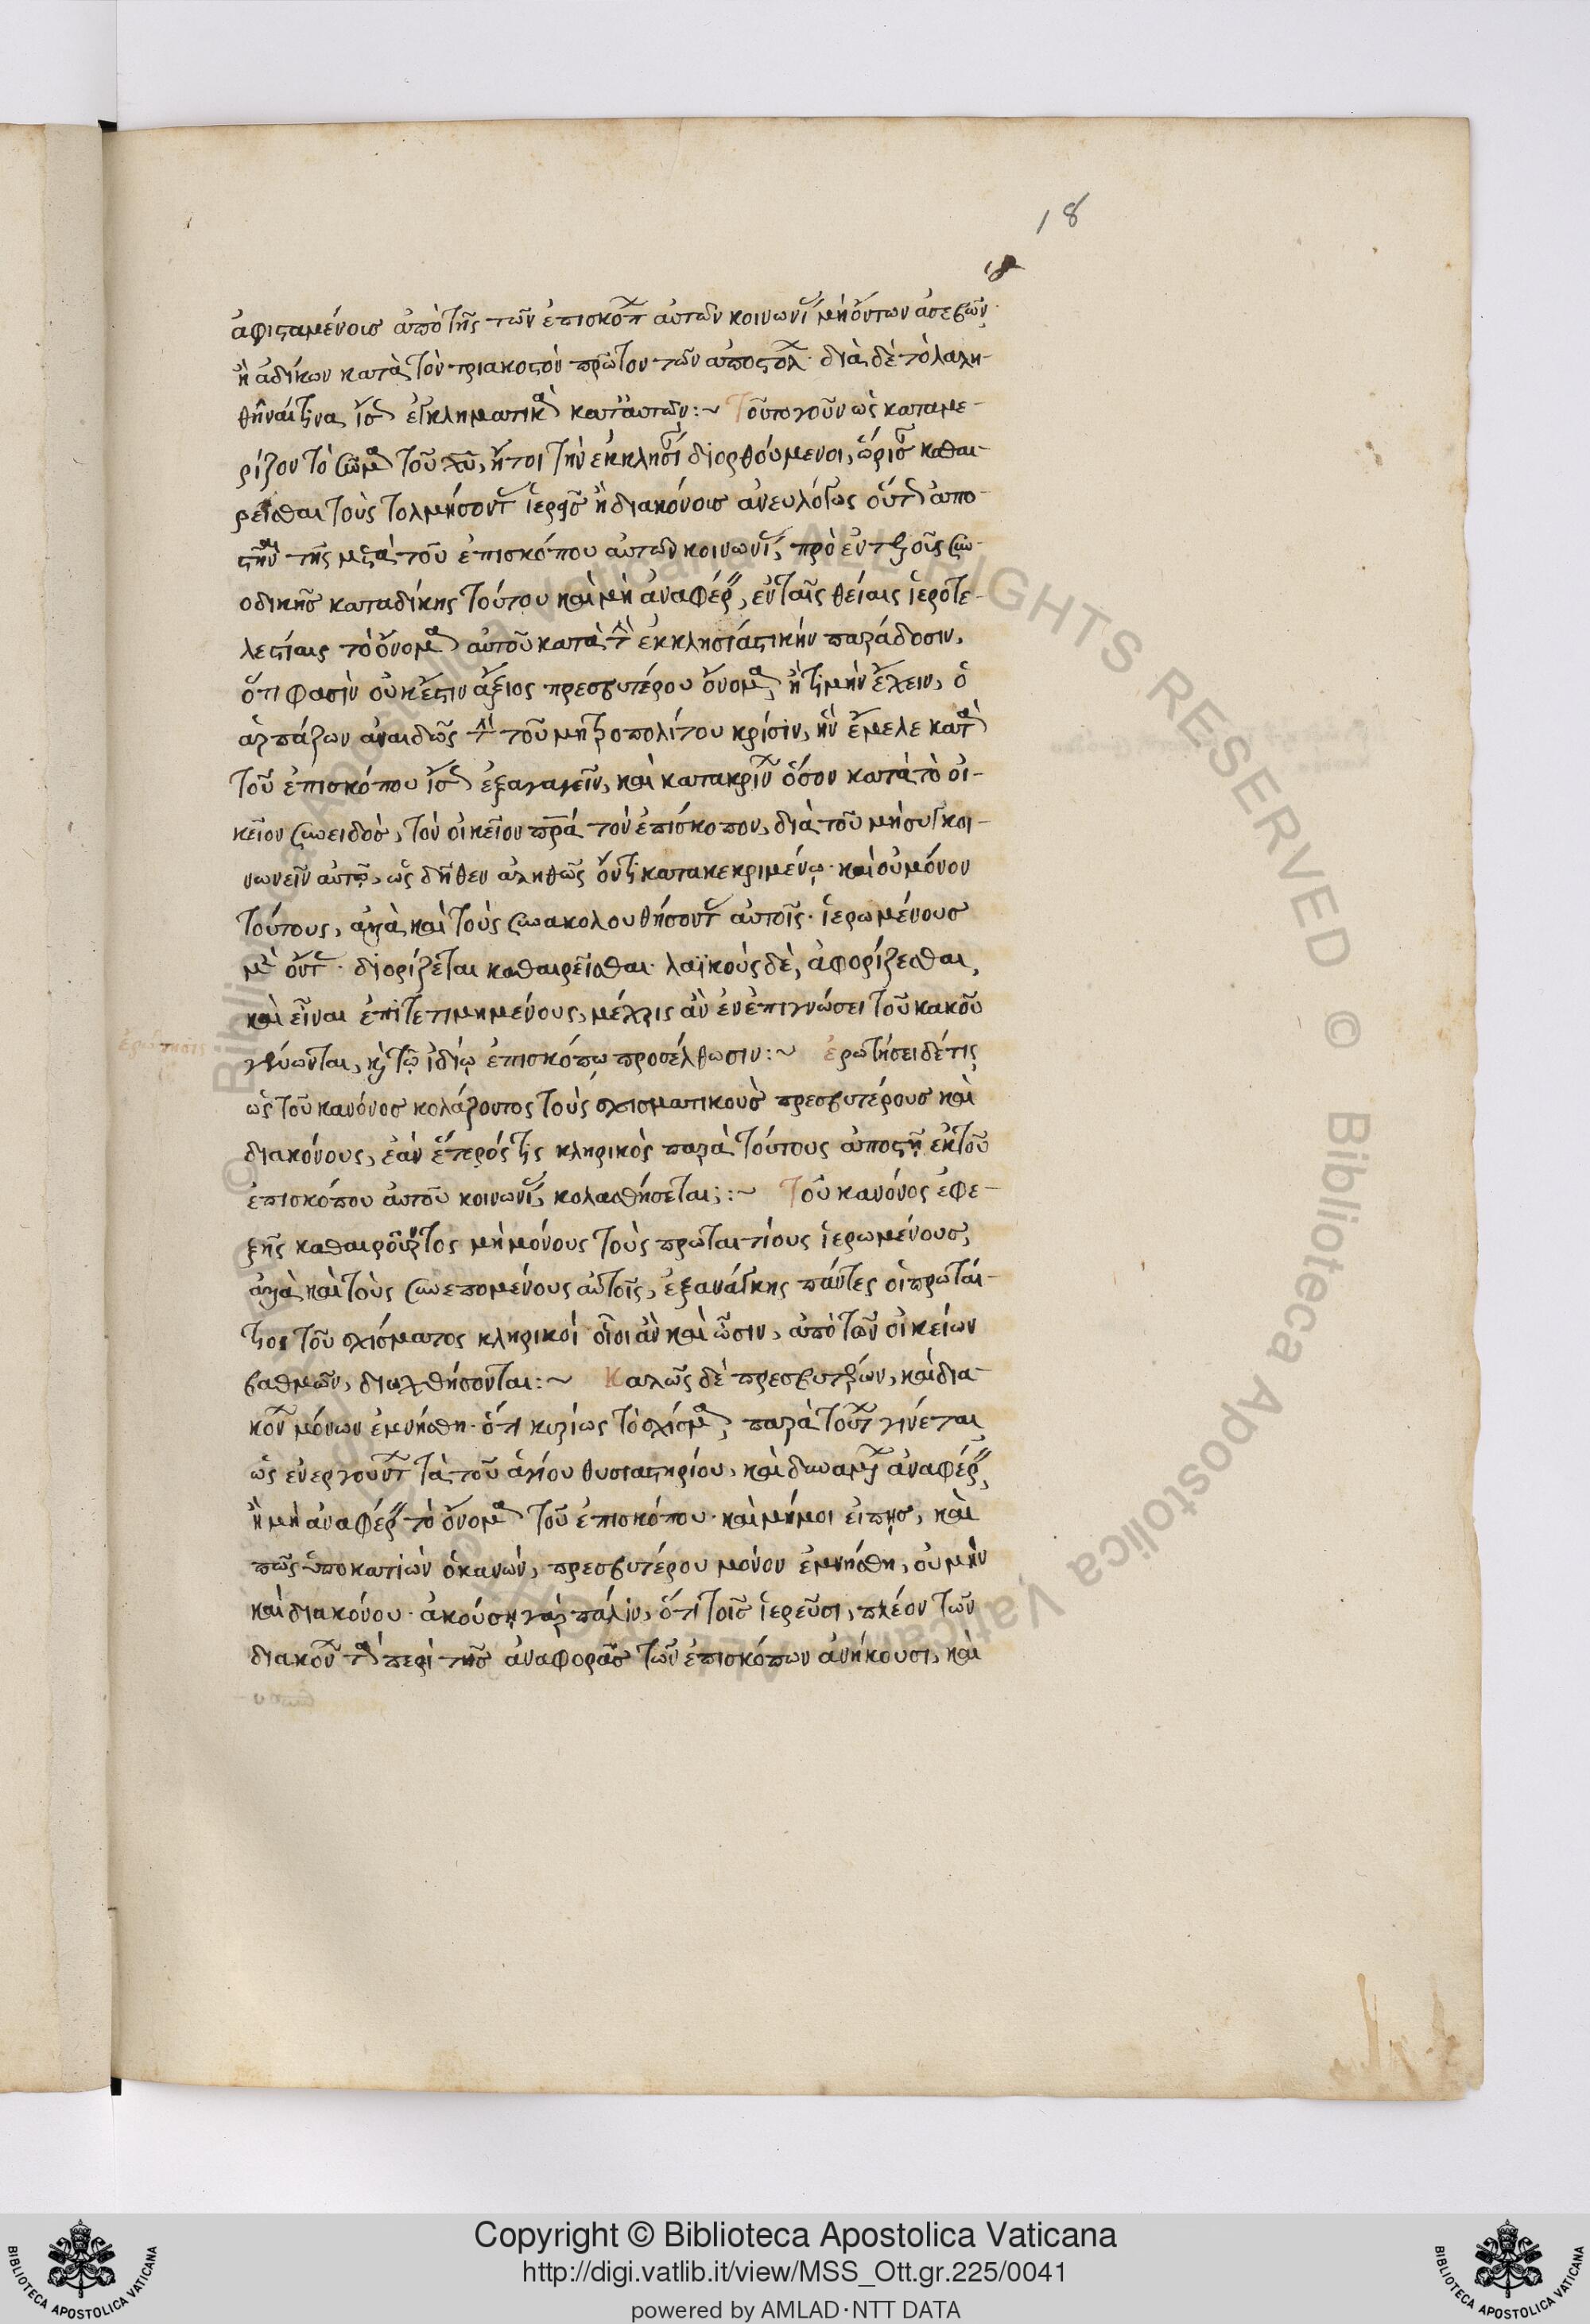 18
ιη
ἀφισταμένοις ἀπὸ τῆς τῶν ἐπισκόπ αὐτῶν κοινωνί μὴ ὄντων ἀσεβῶν
ἢ ἀδίκων κατὰ τὸν τριακοστὸν πρῶτον τῶν ἀποστόλ· διὰ δὲ τὸ λαλη-
θῆναί τινα ἴσ ἐγκληματικὰ κατ' αὐτῶν:~ Τοῦτο γοῦν ὡς καταμε-
ρίζον τὸ σῶμα τοῦ χυ, ἤτοι τὴν ἐκκλησί διορθούμενοι, ὥρισ καθαι-
ρεῖσθαι τοὺς τολμήσοντ ἱερεῖς ἢ διακόνοις ἀνευλόγως οὕτ ἀπο-
στῆναι τῆς μετὰ τοῦ ἐπισκόπου αὐτῶν κοινωνί, πρὸ ἐντελοῦς συν-
οδικῆς καταδίκης τούτου καὶ μὴ ἀναφέρ, ἐν ταῖς θείαις ἱεροτε-
λεστίαις τὸ ὄνομα αὐτοῦ κατὰ τὴν ἐκκλησιαστικὴν παράδοσιν,
ὅτι φασὶν οὐκ ἔστιν ἄξιος πρεσβυτέρου ὄνομα ἢ τιμὴν ἔχειν, ὁ
ἁρπάζων ἀναιδῶς τὴν τοῦ μητροπολίτου κρίσιν, ἣν ἔμελε κατὰ
τοῦ ἐπισκόπου ἴσ ἐξαγαγεῖν, καὶ κατακρίν ὅσον κατὰ τὸ οἰ-
κεῖον συνειδὸς, τὸν οἰκεῖον πρα τὸν ἐπίσκοπον, διὰ τοῦ μὴ συγκοι-
νωνεῖν αὐτῷ, ὡς δῆθεν ἀληθῶς ὄντι κατακεκριμένῳ· καὶ οὐ μόνον
τούτους, ἀλλὰ καὶ τοὺς συνακολουθήσοντ αὐτοῖς· ἱερωμένους
μὲν ὄντ· διορίζεται καθαιρεῖσθαι· λαϊκοὺς δὲ, ἀφορίζεσθαι,
καὶ εἶναι ἐπιτετιμημένους, μέχρις ἂν ἐν ἐπιγνώσει τοῦ κακοῦ
γένωνται, καὶ τῷ ἰδίῳ ἐπισκόπῳ προσέλθωσιν:~ ἐρωτήσει δέ τις
ἐρώτησις
ὡς τοῦ κανόνος κολάζοντος τοὺς σχισματικοὺς πρεσβυτέρους καὶ
διακόνους, ἐὰν ἕτερός τις κληρικὸς παρὰ τούτους ἀποστῇ ἐκ τοῦ
ἐπισκόπου αὐτοῦ κοινωνί, κολασθήσεται;:~ Τοῦ κανόνος ἐφε-
ξῆς καθαιροῦντος μὴ μόνους τοὺς πρωταιτίους ἱερωμένους,
ἀλλὰ καὶ τοὺς συνεπομένους αὐτοῖς, ἐξανάγκης πάντες οἱ πρωταί-
τιοι τοῦ σχίσματος κληρικοί οἷοι ἂν καὶ ὦσιν, ἀπὸ τῶν οἰκείων
βαθμῶν, διωχθήσονται:~ Καλῶς δὲ πρεσβυτέρων, καὶ δια-
κόν μόνων ἐμνήσθη· ὅτι κυρίως τὸ σχίσμα, παρὰ τούτ γίνεται
ὡς ἐνεργούντ τὰ τοῦ ἁγίου θυσιαστηρίου, καὶ δυναμέν ἀναφέρ,
ἢ μὴ ἀναφέρ τὸ ὄνομα τοῦ ἐπισκόπου· καὶ μή μοι εἴπῃς, καὶ
πῶς ὑποκατιὼν ὁ κανὼν, πρεσβυτέρου μόνον ἐμνήσθη, οὐ μὴν
καὶ διακόνου· ἀκούσῃ γὰρ πάλιν, ὅτι τοῖς ἱερεῦσι, πλέον τῶν
διακόν τὰ περὶ τῆς ἀναφορᾶς τῶν ἐπισκόπων ἀνήκουσι, καὶ
Copyright © Biblioteca Apostolica Vaticana
http://digi.vatlib.it/view/MSS_Ott.gr.225/0041
powered by AMLAD·NTT DATA
BIBLIOTECA APOSTOLICA VATICANA
BIBLIOTECA APOSTOLICA VATICANA
© Biblioteca Apostolica Vaticana ALL RIGHTS RESERVED © Biblioteca Apostolica Vaticana ALL RIGHTS RESERVED